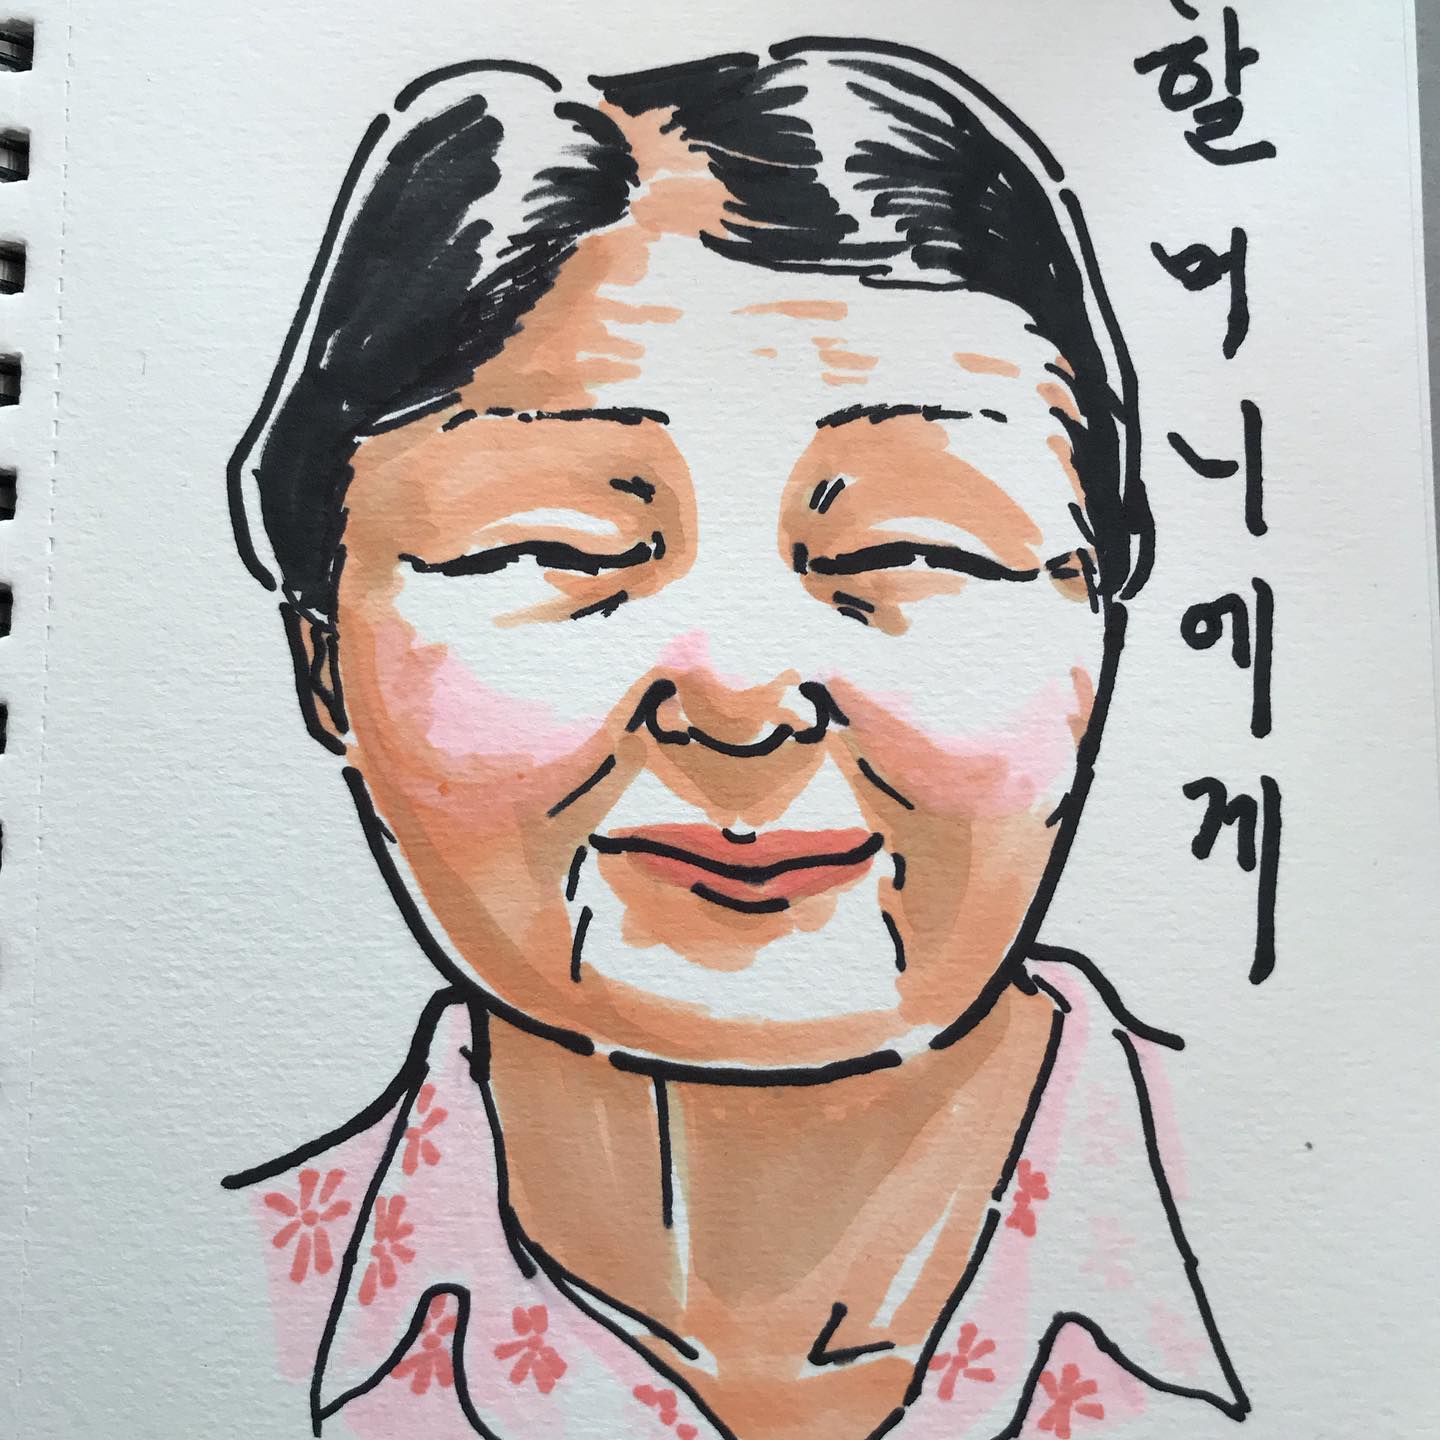 할머니에게